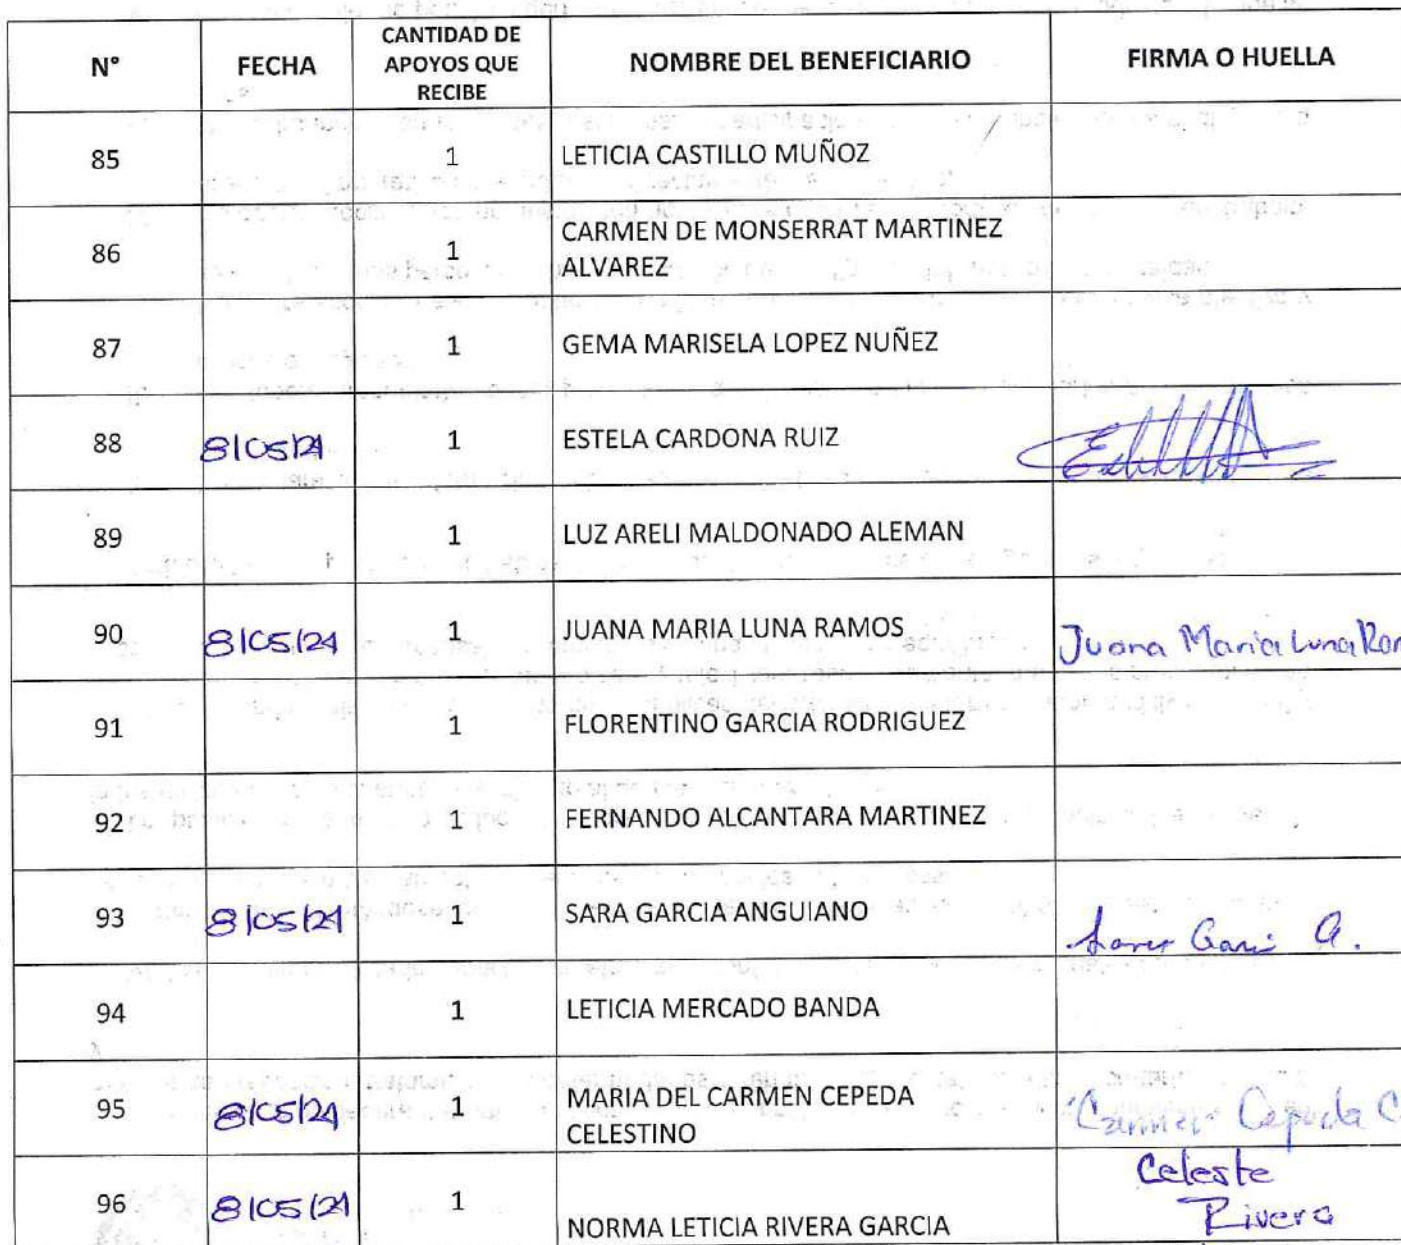 N° FECHA CANTIDAD DE APOYOS QUE RECIBE NOMBRE DEL BENEFICIARIO FIRMA O HUELLA
85 1 LETICIA CASTILLO MUÑOZ
86 1 CARMEN DE MONSERRAT MARTINEZ
ALVAREZ
87 1 GEMA MARISELA LOPEZ NUÑEZ
88 8/05/24 1 ESTELA CARDONA RUIZ
89 1 LUZ ARELI MALDONADO ALEMAN
90 8/05/24 1 JUANA MARIA LUNA RAMOS Juana Maria Luna Ram
91 1 FLORENTINO GARCIA RODRIGUEZ
92 1 FERNANDO ALCANTARA MARTINEZ
93 8/05/24 1 SARA GARCIA ANGUIANO
94 1 LETICIA MERCADO BANDA
95 8/05/24 1 MARIA DEL CARMEN CEPEDA
CELESTINO Carmen Cepeda C
96 8/05/24 1 NORMA LETICIA RIVERA GARCIA Celeste
Rivera